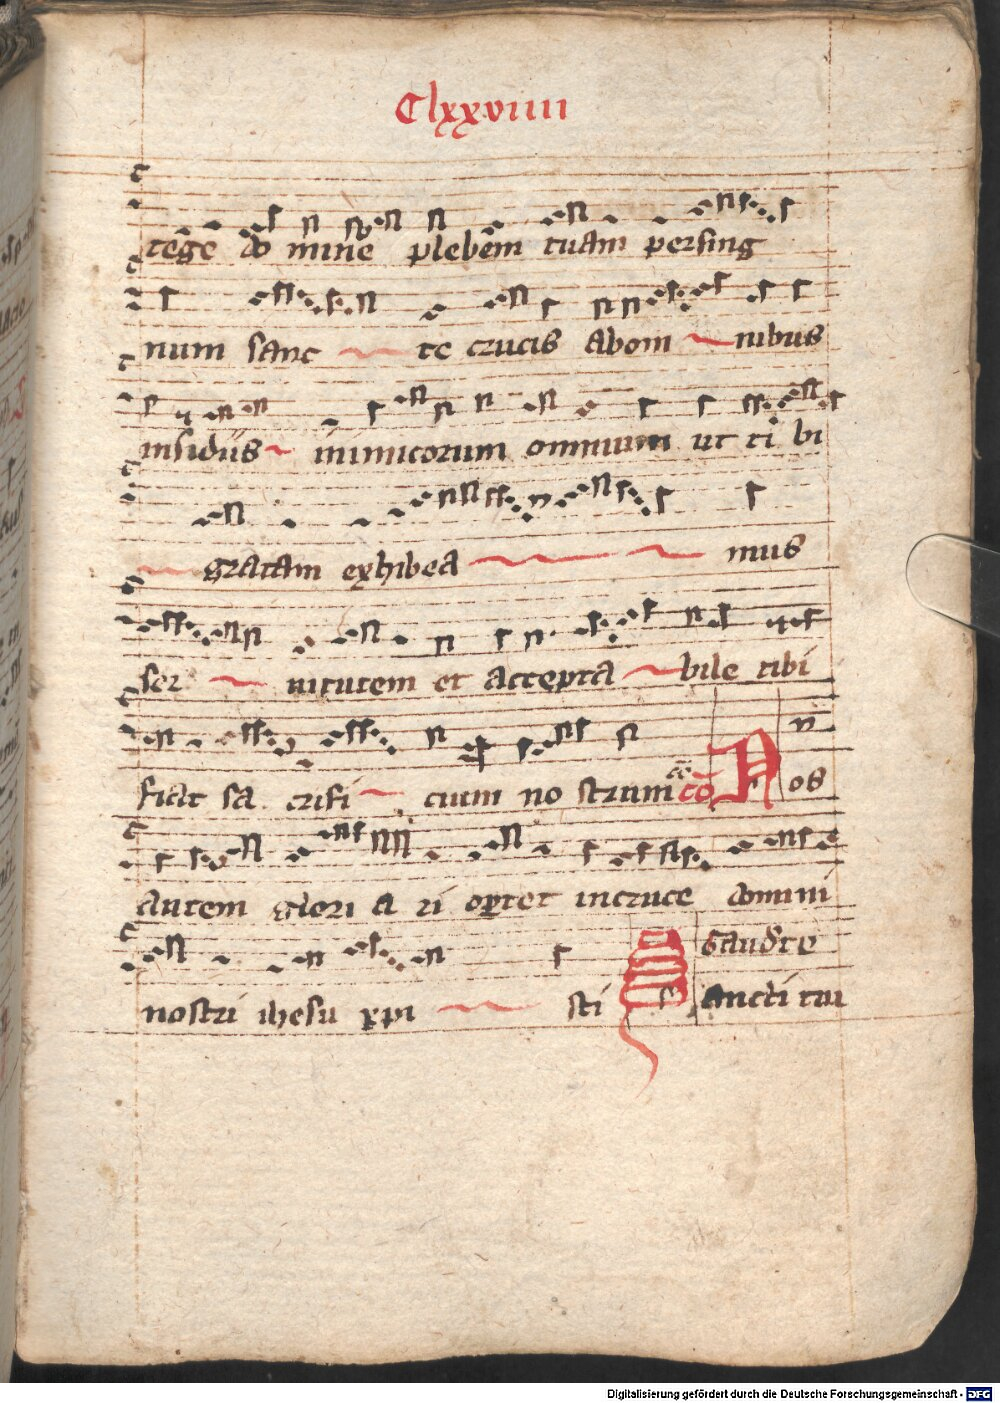 Clxxviiii
tege do mine plebem tuam persing
num sanc te crucis abom nibus
insidiis inimicorum omnium ut ti bi
gratam exhibea mus
ser uitutem et accepta bile tibi
fiat sa crifi cium no strum cō Nos
autem glori a ri oportet incruce domini
Gaudete
nostri ihesu xpi sti Sancti tui
Digitalisierung gefördert durch die Deutsche Forschungsgemeinschaft - DFG